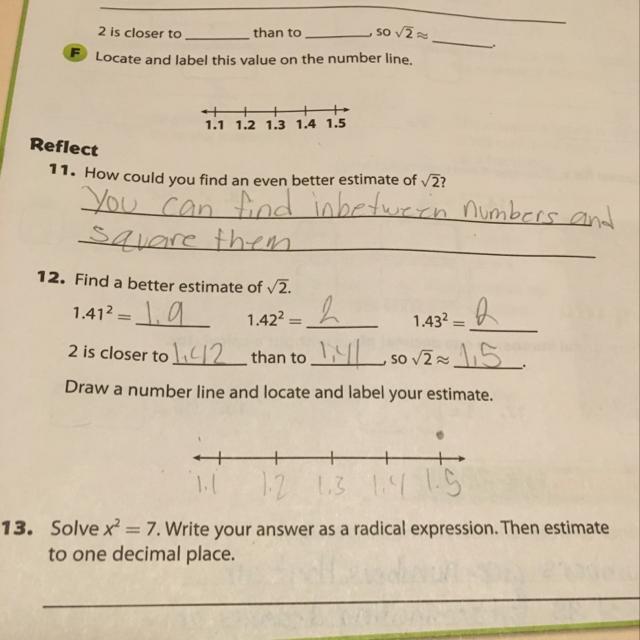 2 is closer to ________ than to ________, so √2 ≈ ________.
F Locate and label this value on the number line.
1.1 1.2 1.3 1.4 1.5
Reflect
11. How could you find an even better estimate of √2?
You can find inbetween numbers and
square them
12. Find a better estimate of √2.
1.41² = 1.9 1.42² = 2 1.43² = 2
2 is closer to 1.42 than to 1.41, so √2 ≈ 1.5.
Draw a number line and locate and label your estimate.
1.1 1.2 1.3 1.4 1.5
13. Solve x² = 7. Write your answer as a radical expression. Then estimate
to one decimal place.